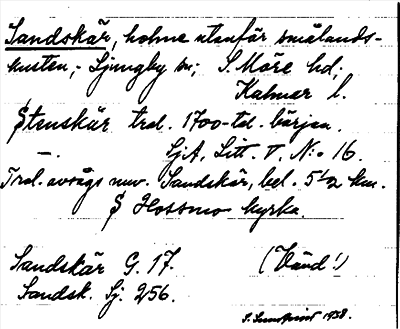 Sandskär, holme utanför smålands-
kusten,- Ljungby sn; S. Möre hd.;
Kalmar l.
Stenskär trol. 1700-tal. början.
—. GjA, Litt. V, N:o 16.
Trol. avsågs nuv. Sandskär, bel. 5 1/2 km.
S Hossmo kyrka.
Sandskär G. 17. (Vänd!)
Sandsk. Sj. 256.
1938.